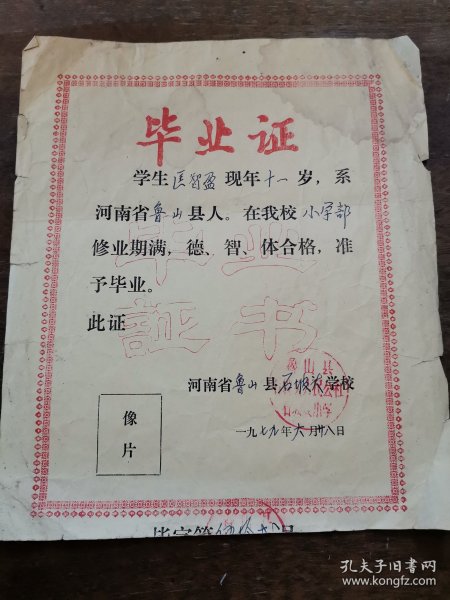 毕业证
学生匡智盈现年十一岁，系
河南省鲁山县人。在我校小学部
修业期满，德、智、体合格，准
予毕业。
此证
毕业
証书
河南省鲁山县石坡头学校
鲁山县
一九七九年六月廿八日
像
片
孔夫子旧书网
www.kongfz.com